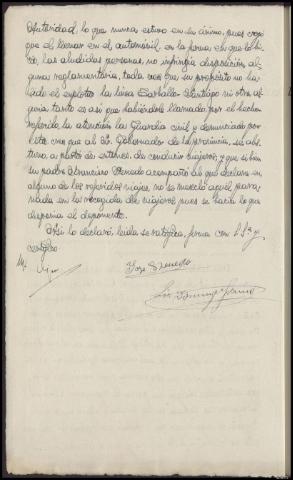 Autoridad, lo que nunca estuvo en su ánimo, pues creyó
que al llevar en el automóvil en la forma en que lo hi-
zo, las aludidas personas, no infringía disposición al-
guna reglamentaria, toda vez que su propósito no ha
sido el explotar la línea Carballo-Santiago ni otra al-
guna, tanto es así que habiéndole llamado por el hecho
referido la atención la Guardia civil y denunciado por
ésta cree que al Sr. Gobernador de la provincia, se abs-
tuvo a partir de entonces de conducir viajeros y que si bien
su padre Francisco acompañó al que declara en
alguno de los referidos viajes, no se mezcló aquél para
nada en la recogida de viajeros pues se hacía lo que
disponía el deponente.
Así lo declaró, leída se ratifica, firma con S. Sª y
certifico.
José